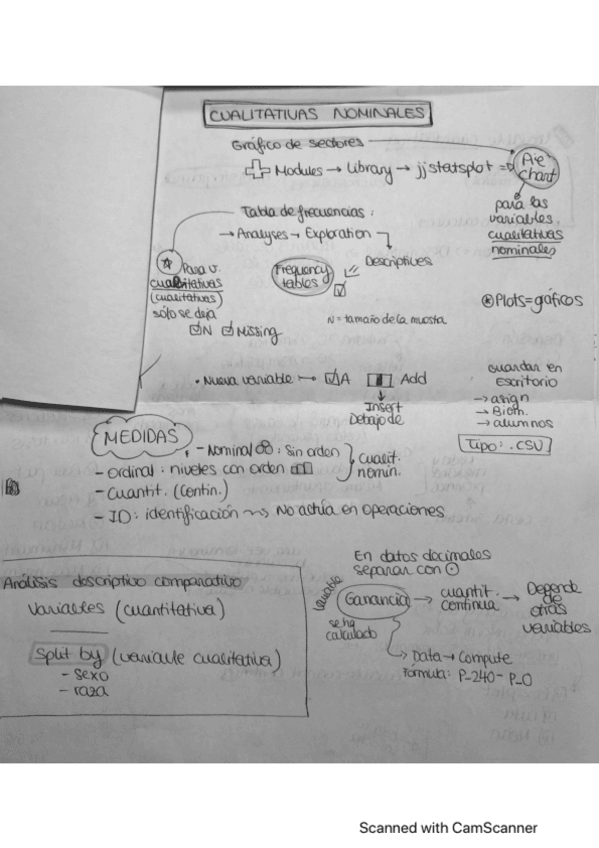 CUALITATIVAS NOMINALES
Gráfico de sectores
Modules → Library → jjstatsplot →
Pie
chart
para las
variables
cualitativas
nominales
Tabla de frecuencias:
→ Analyses → Exploration
Descriptives
Frequency
tables
Para v.
cualitativas
(cualitativas)
sólo se deja
N Missing
N = tamaño de la muestra
Plots = gráficos
• Nueva variable → A Add
Insert
Debajo de
Guardar en
escritorio
→ asign
→ Bioh.
→ alumnos
Tipo: .CSV
MEDIDAS
- Nominal: Sin orden
- ordinal: niveles con orden
cualit.
nomin.
- Cuantit. (contin.)
- ID: identificación → No actúa en operaciones
En datos decimales
separar con ⊙
Análisis descriptivo comparativo
Variables (cuantitativa)
Split by (variable cualitativa)
- sexo
- raza
variable
Ganancia → cuantit. continua → Depende de otras variables
se ha
calculado
Data → Compute
Fórmula: P-240 - P-0
Scanned with CamScanner